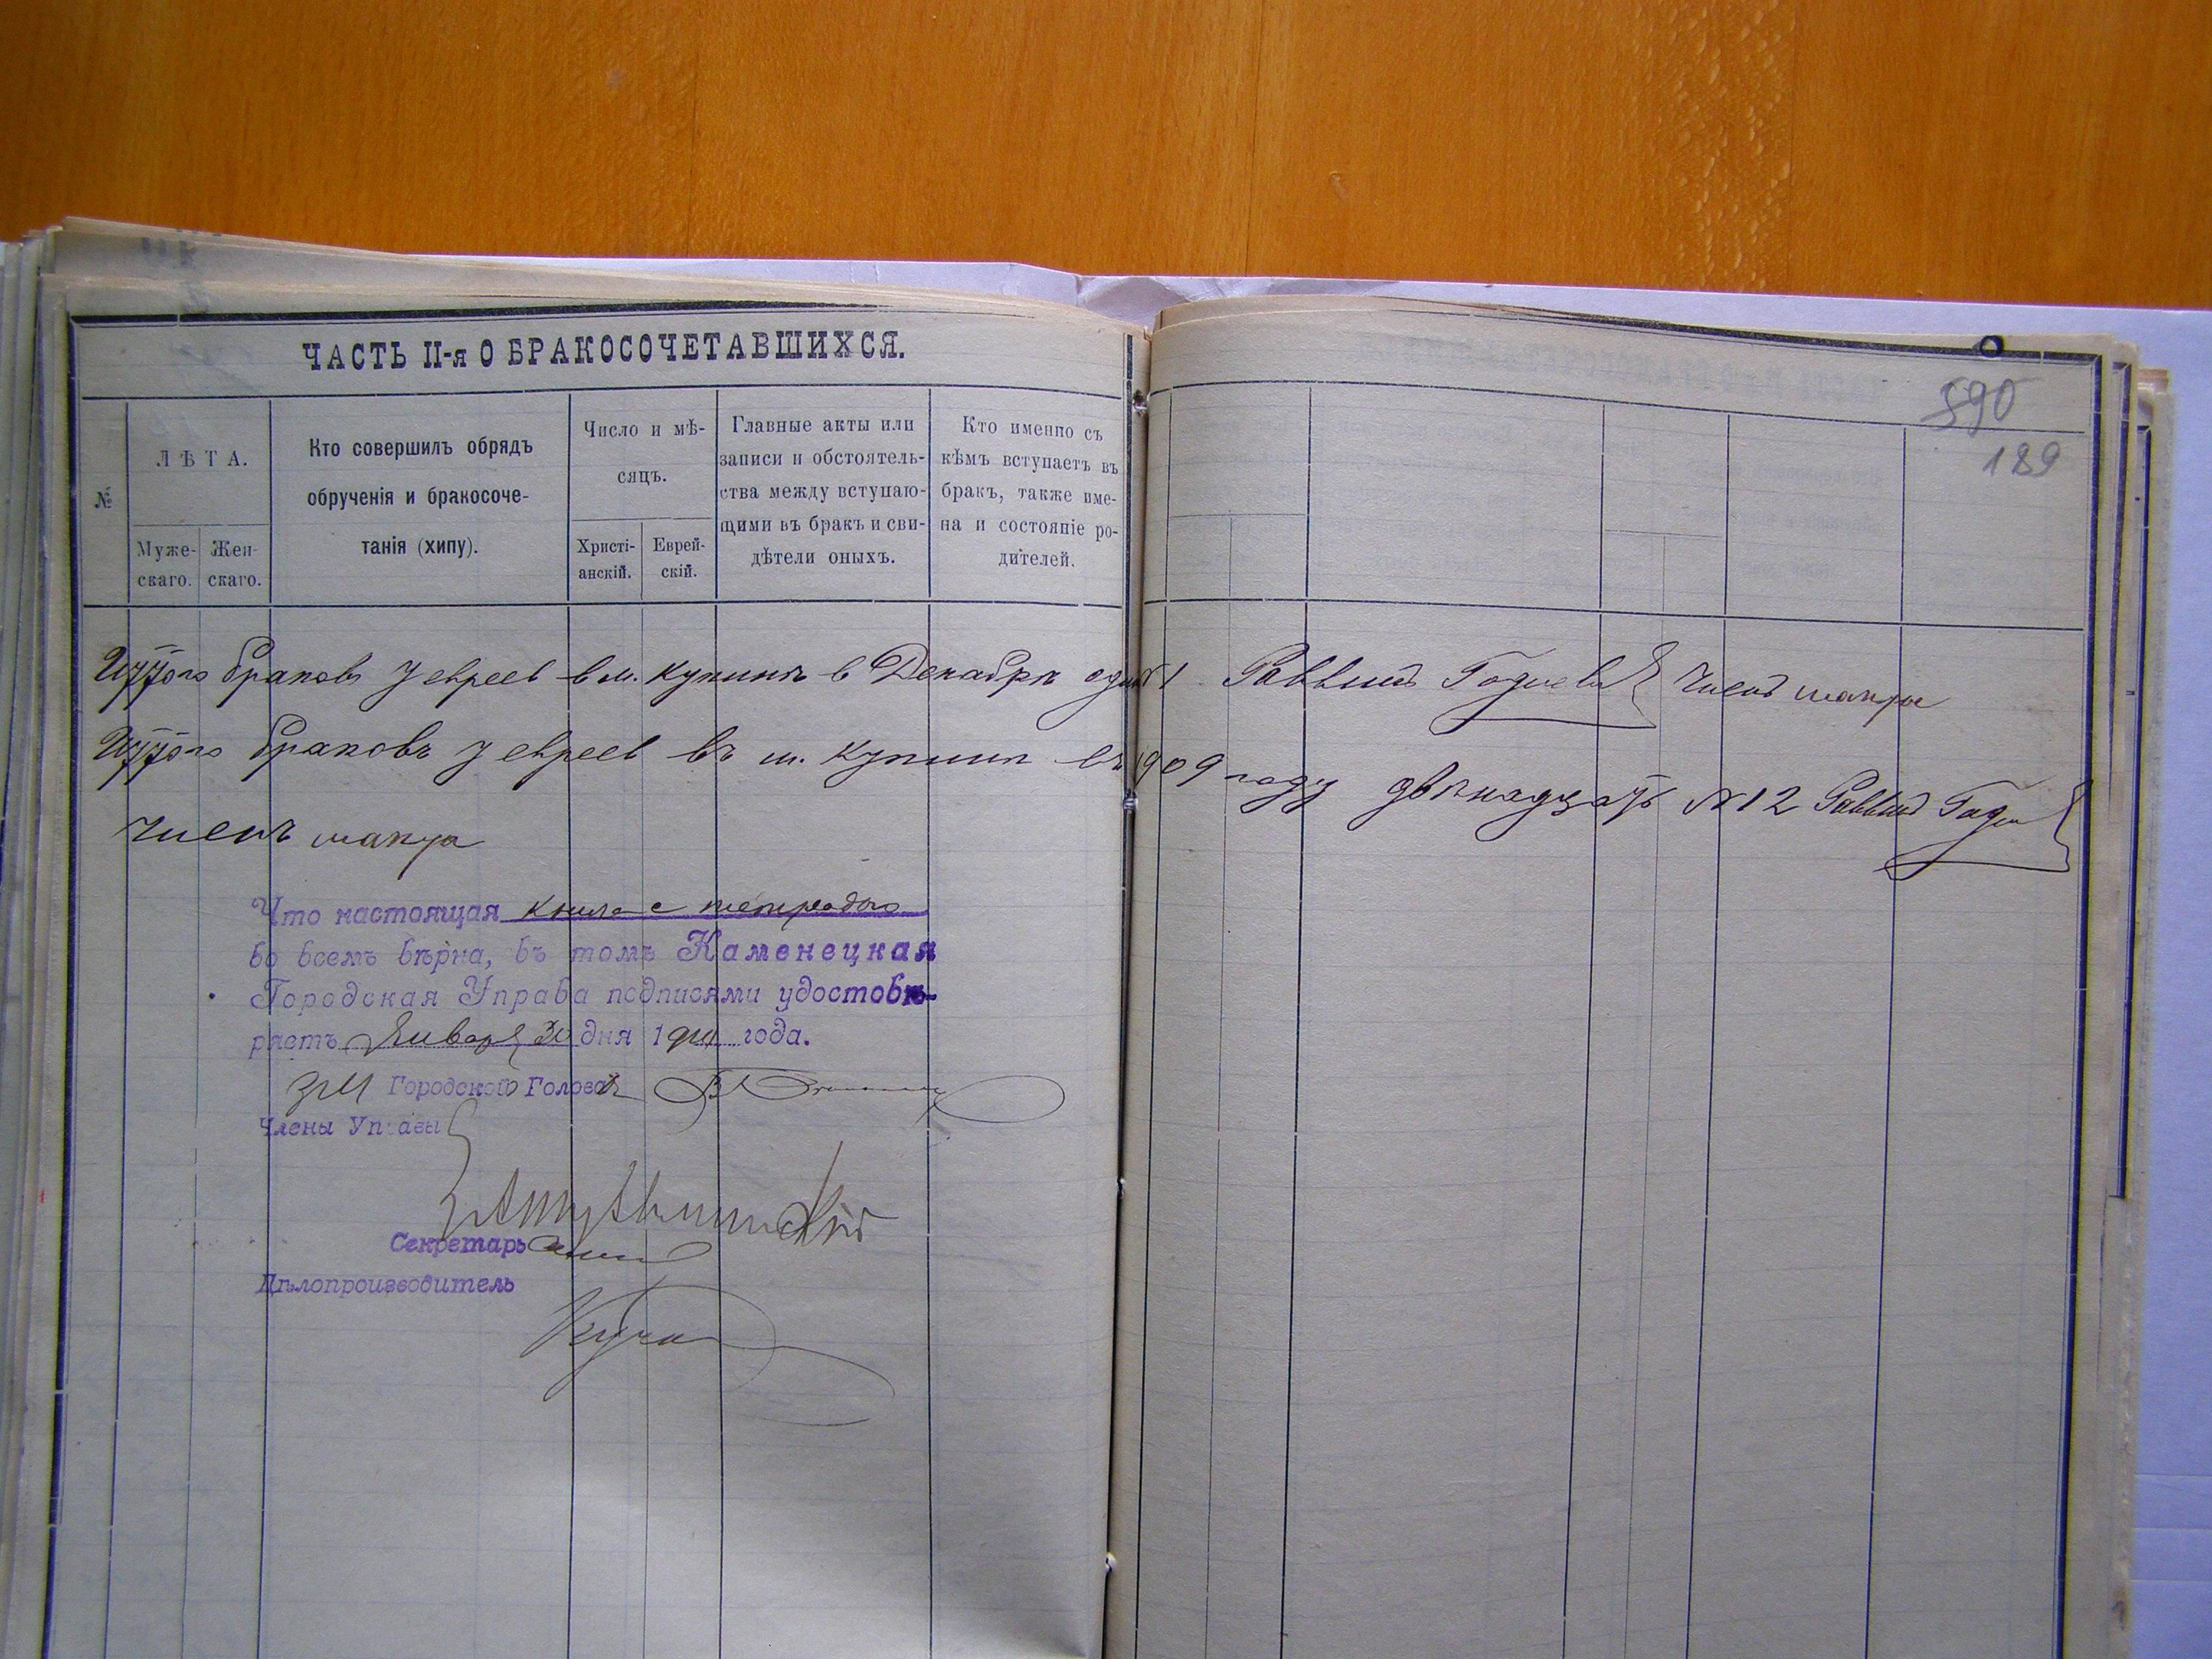 ЧАСТЬ II-я О БРАКОСОЧЕТАВШИХСЯ.
№
ЛѢТА.
Муже-
скаго.
Жен-
скаго.
Кто совершилъ обрядъ
обрученія и бракосоче-
танія (хипу).
Число и мѣ-
сяцъ.
Христі-
анскій.
Еврей-
скій.
Главные акты или
записи и обстоятель-
ства между вступаю-
щими въ бракъ и сви-
дѣтели оныхъ.
Кто именно съ
кѣмъ вступаетъ въ
бракъ, также име-
на и состояніе ро-
дителей.
590
189
браковъ у евреев в м. Купинѣ в Декабрѣ один №1 Раввинъ Членъ
браковъ у евреев въ м. Купинѣ въ 1909 году двѣнадцать №12 Раввинъ
Членъ
Что настоящая книга с тетрадью
во всемъ вѣрна, въ томъ Каменецкая
Городская Управа подписями удостовѣ-
ряетъ Января 30 дня 19 года.
Городской Голова
Члены Управы
Секретарь
Дѣлопроизводитель